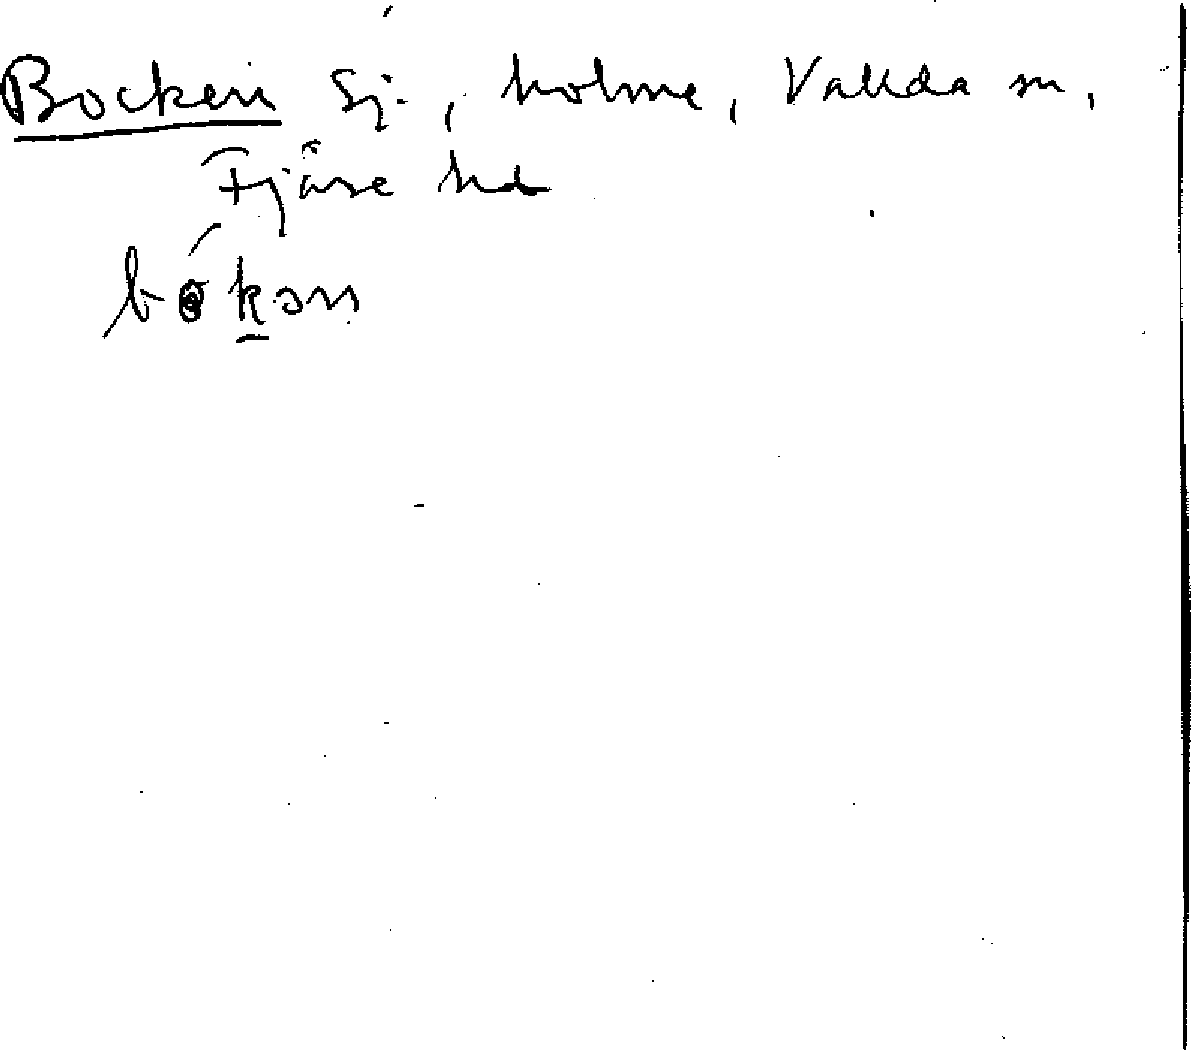 Bocken Sj., holme, Vallda sn,
Fjäre hd
bókən